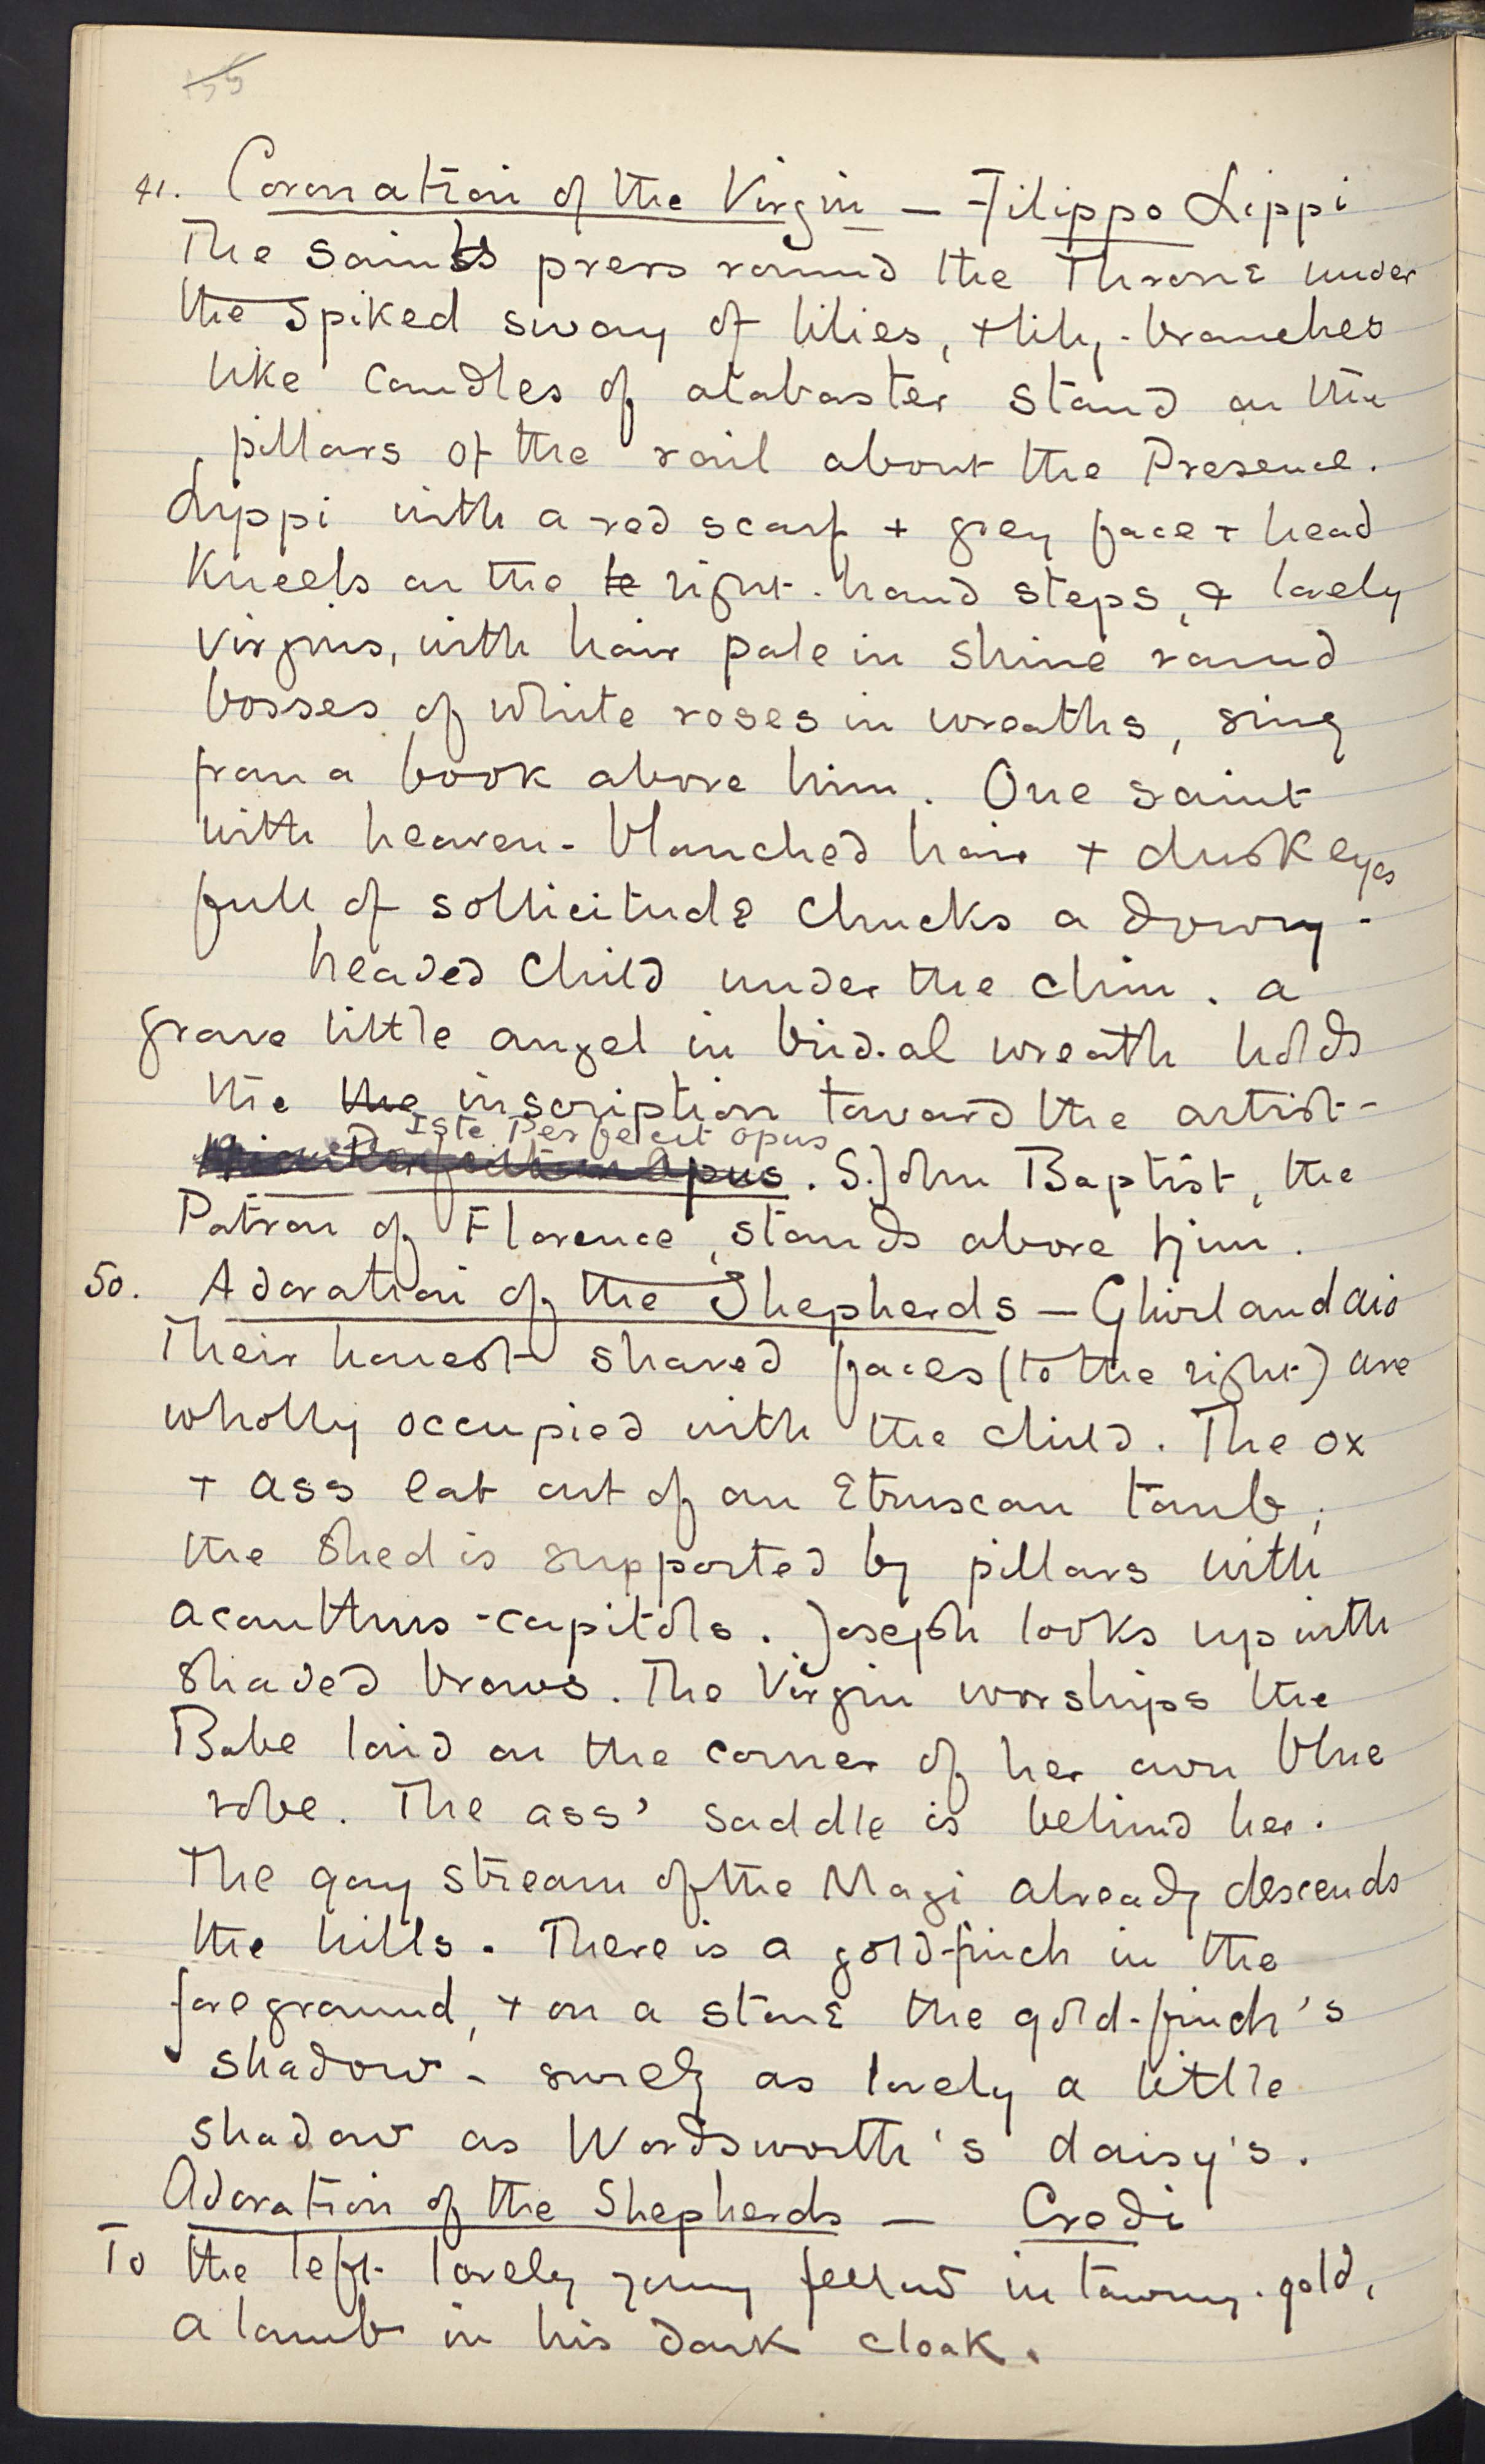 41. Coronation of the Virgin — Filippo Lippi
The Saints press round the Throne under
the spiked sway of lilies, + lily-branches
like candles of alabaster stand on the
pillars of the rail about the Presence.
Lippi with a red scarf + grey face + head
kneels on the le right-hand steps, & lovely
virgins, with hair pale in shine round
bosses of white roses in wreaths, sing
from a book above him. One saint
with heaven-blanched hair + dusk eyes
full of sollicitude chucks a downy-
headed child under the chin. A
grave little angel in bridal wreath holds
the the inscription toward the artist-
Iste Perfecit opus
Opus. S. John Baptist, the
Patron of Florence, stands above him.
50. Adoration of the Shepherds — Ghirlandaio
Their honest shaved faces (to the right) are
wholly occupied with the child. The ox
+ ass eat out of an Etruscan tomb;
the shed is supported by pillars with
acanthus-capitols. Joseph looks up with
shaded brows. The Virgin worships the
Babe laid on the corner of her own blue
robe. The ass' saddle is behind her.
The gay stream of the Magi already descends
the hills. There is a gold-finch in the
foreground, + on a stone the gold-finch's
shadow - surely as lovely a little
shadow as Wordsworth's daisy's.
Adoration of the Shepherds — Credi
To the left lovely young fellow in tawny-gold,
a lamb in his dark cloak.